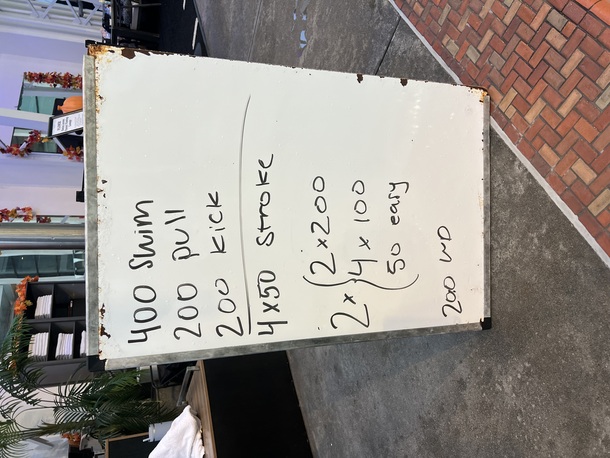 400 Swim
200 pull
200 kick
4x50 stroke
2x200
2x 4x100
50 easy
200 WD